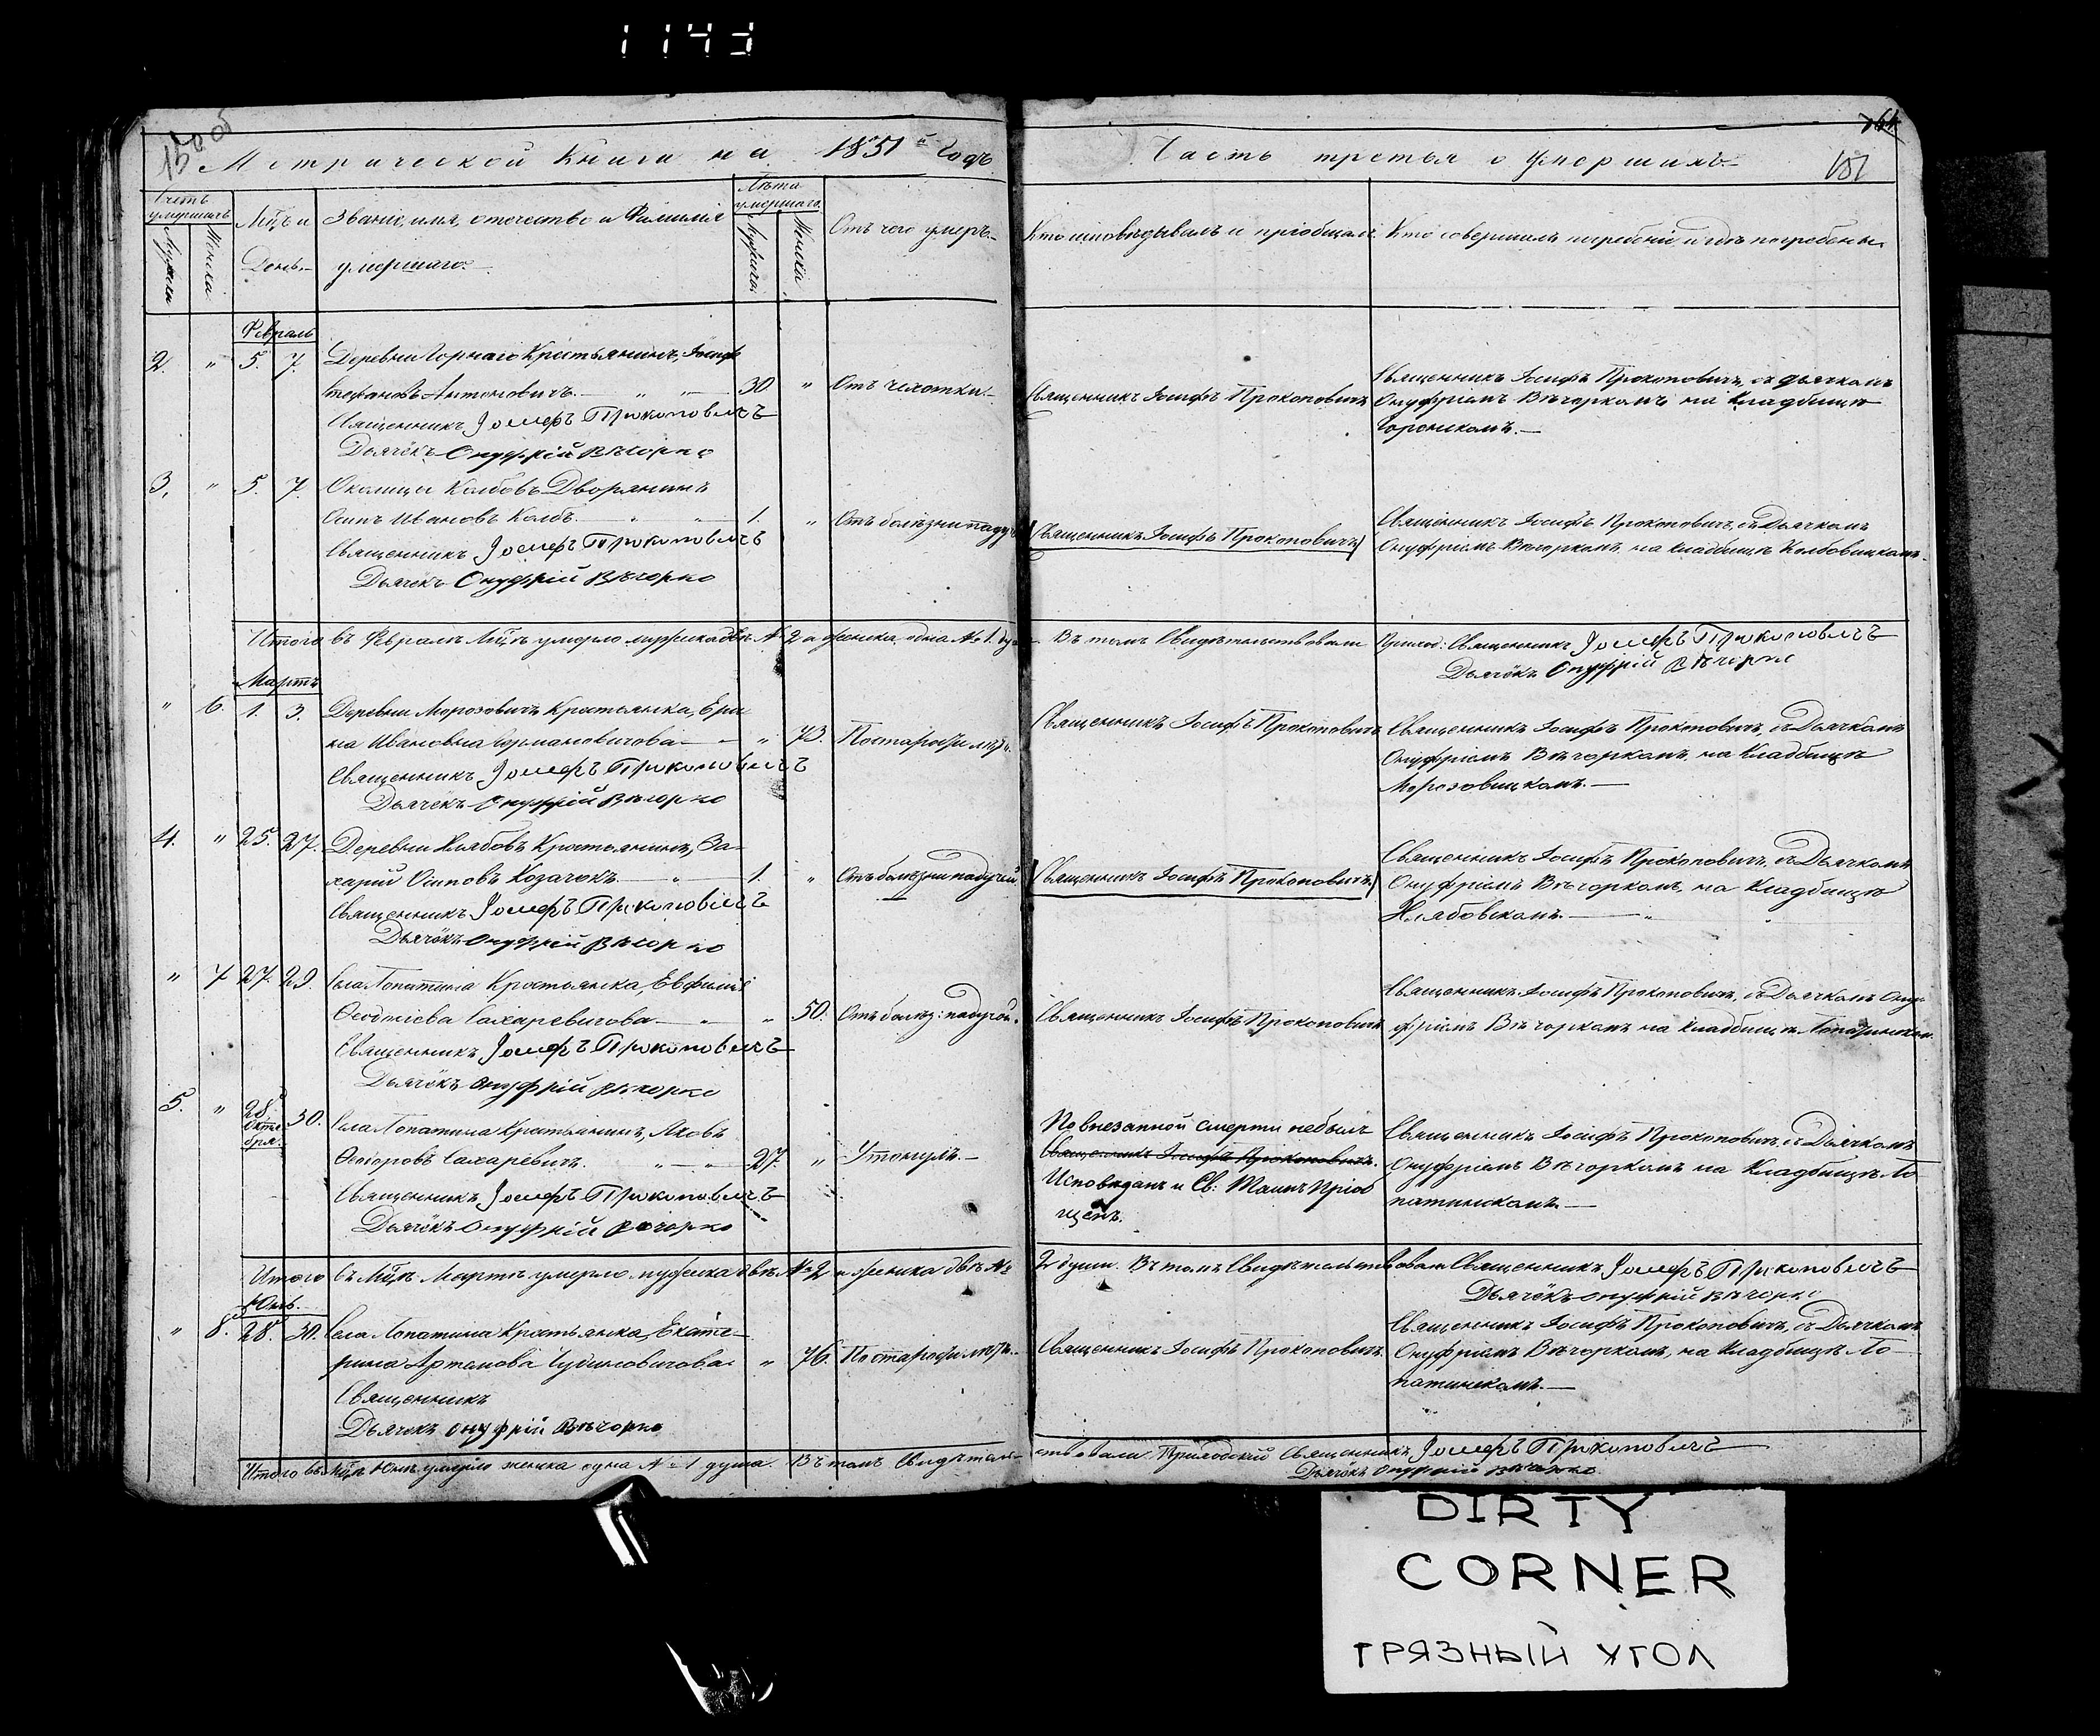 1143
150 об
Метрической Книги на 1851 Годъ
Часть третья о умершихъ
151
Счетъ умершихъ
Мужска
Женска
Мцъ и День
Званіе, имя, отечество и Фамилія умершаго.
Лѣта умершаго.
Мужеска
Женска
Отъ чего умеръ.
Кто исповѣдывалъ и пріобщалъ.
Кто совершалъ погребеніе и гдѣ погребены.
Февраль
2. " 5. 7. Деревни Горнаго Крестьянинъ, Іосифъ
Стефановъ Антоновичъ. 30 " Отъ чахотки.
Священникъ Іосифъ Прокоповичъ
Дьячёкъ Онуфрій Вѣчорко
Священникъ Іосифъ Прокоповичъ
Священникъ Іосифъ Прокоповичъ, съ дьячкомъ
Онуфріемъ Вѣчоркомъ на Кладбищѣ
Горонскомъ.
3. " 5. 7. Околицы Колбовъ Дворянинъ
Осипъ Ивановъ Колб. 1. " Отъ болѣзни падуч
Священникъ Іосифъ Прокоповичъ
Дьячёкъ Онуфрій Вѣчорко
Священникъ Іосифъ Прокоповичъ
Священникъ Іосифъ Прокоповичъ, съ Дьячкомъ
Онуфріемъ Вѣчоркомъ, на кладбищѣ Колбовицкомъ.
Итого въ Февралѣ Мцѣ умерло мужска двѣ № 2 а женска одна № 1.
Въ томъ Свидѣтельствовали Приход: Священникъ Іосифъ Прокоповичъ
Дьячёкъ Онуфрій Вѣчорко
Мартъ
" 6. 1. 3. Деревни Морозовичъ Крестьянка, Ери-
на Ивановна Германовичова " 73. По старости лѣтъ.
Священникъ Іосифъ Прокоповичъ
Дьячёкъ Онуфрій Вѣчорко
Священникъ Іосифъ Прокоповичъ
Священникъ Іосифъ Прокоповичъ, съ Дьячкомъ
Онуфріемъ Вѣчоркомъ, на Кладбищѣ
Морозовицкомъ.
4. " 25. 27. Деревни Хлябовъ Крестьянинъ, За-
харій Осиповъ Козачокъ 1. " Отъ болѣзни падучей
Священникъ Іосифъ Прокоповичъ
Дьячёкъ Онуфрій Вѣчорко
Священникъ Іосифъ Прокоповичъ
Священникъ Іосифъ Прокоповичъ, съ Дьячкомъ
Онуфріемъ Вѣчоркомъ, на Кладбищѣ
Хлябовскомъ.
" 7 27. 29. Села Лопатина Крестьянка, Евфимія
Ѳеодосіева Сахаревичова " 50. Отъ болѣз: падучей.
Священникъ Іосифъ Прокоповичъ
Дьячёкъ Онуфрій Вѣчорко
Священникъ Іосифъ Прокоповичъ
Священникъ Іосифъ Прокоповичъ, съ Дьячкомъ Ону-
фріемъ Вѣчоркомъ на кладбищѣ Лопатинском.
5. " 28 Октября 30. Села Лопатина Крестьянинъ, Яковъ
Ѳеодоровъ Сахаревичъ. 27. " Утонулъ.
Священникъ Іосифъ Прокоповичъ
Дьячёкъ Онуфрій Вѣчорко
По внезапной смерти небылъ
Священникъ Іосифъ Прокоповичъ.
Исповѣданъ и Св: Таинъ Пріоб
щенъ.
Священникъ Іосифъ Прокоповичъ, съ Дьячкомъ
Онуфріемъ Вѣчоркомъ на Кладбищѣ Ло
патинскомъ.
Итого въ Мцѣ Мартѣ умерло мужска двѣ № 2 и женска двѣ №
2 души. Въ томъ Свидѣтельствовали Священникъ Іосифъ Прокоповичъ
Дьячёкъ Онуфрій Вѣчорко
Юнь.
" 8. 28. 30. Села Лопатина Крестьянка, Екате-
рина Артемова Чудиловичова " 76. По старости лѣтъ.
Священникъ
Дьячекъ Онуфрій Вѣчорко
Священникъ Іосифъ Прокоповичъ.
Священникъ Іосифъ Прокоповичъ, съ Дьячкомъ
Онуфріемъ Вѣчоркомъ, на Кладбищѣ Ло-
патинскомъ.
Итого въ Мцѣ Юнѣ умерло женска одна № 1 душа. Въ томъ Свидѣтель-
ствовали Приходскій Священникъ Іосифъ Прокоповичъ
Дьячёкъ Онуфрій Вѣчорко
DIRTY
CORNER
ГРЯЗНЫЙ УГОЛ